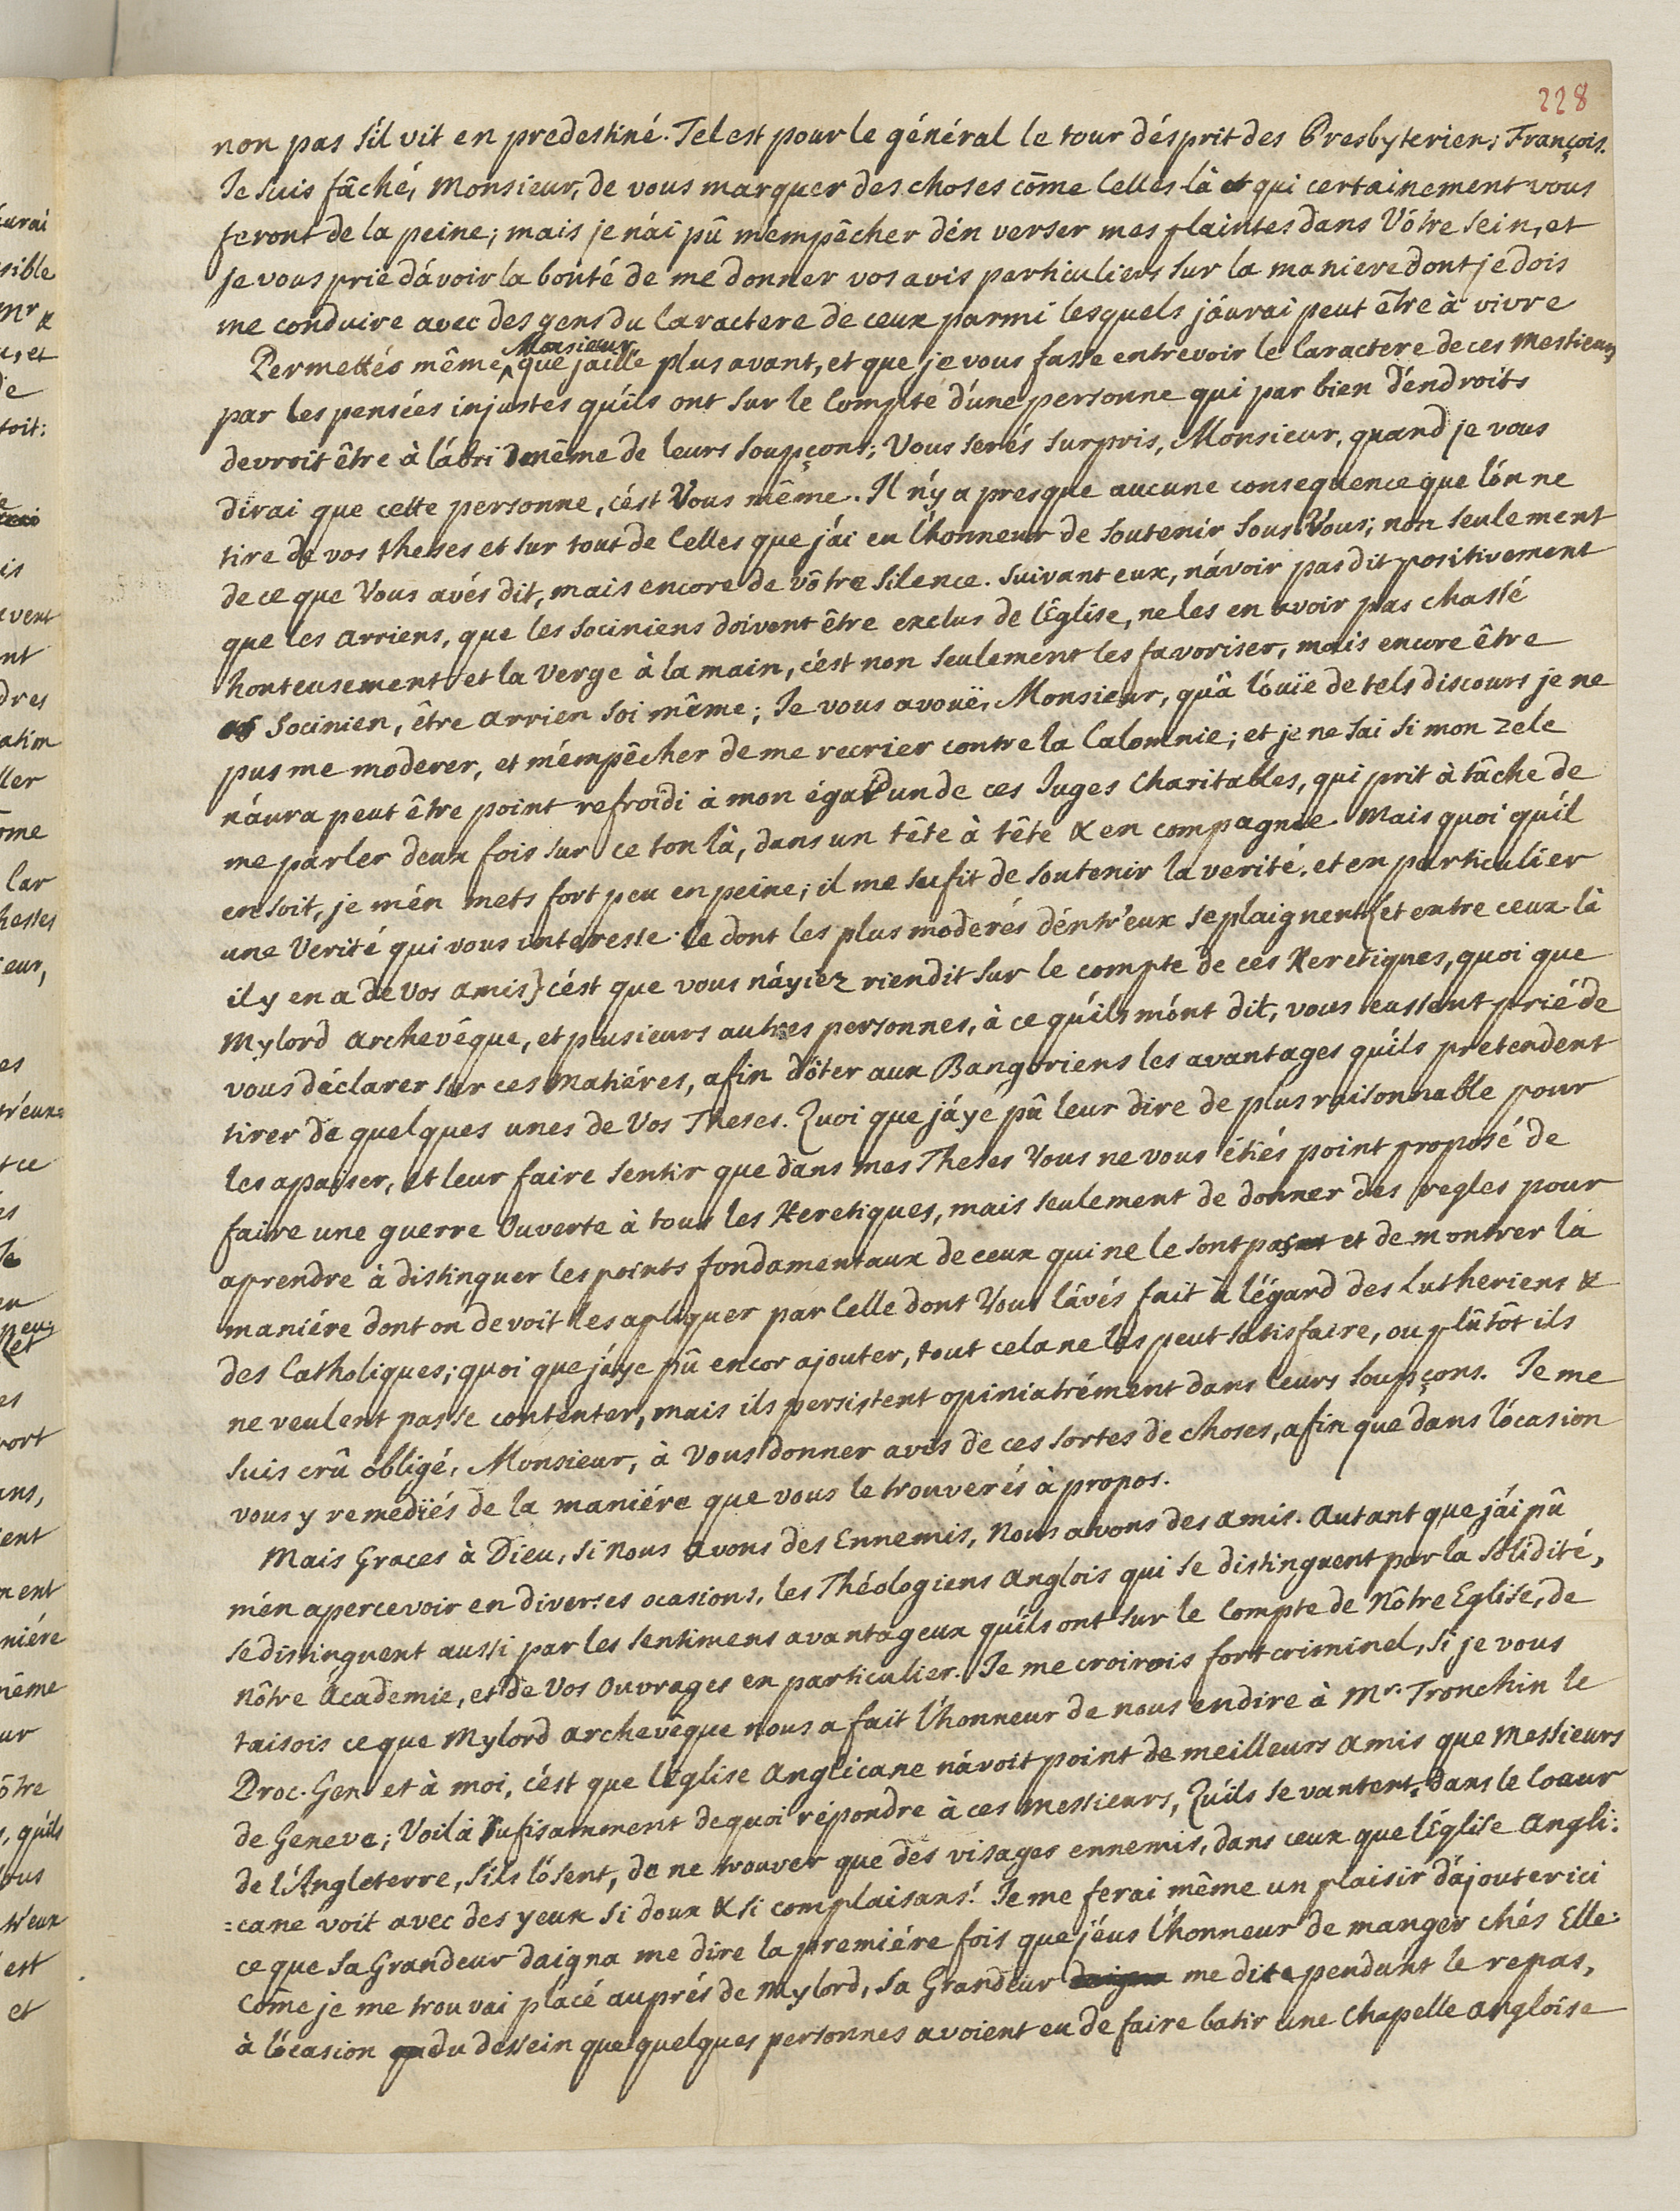 228
non pas s'il vit en predestiné. Tel est pour le général le tour d'ésprit des Presbyteriens François.
Je suis fâché, Monsieur, de vous marquer des choses cõme celles-là et qui certainement vous
feront de la peine; mais je n'ai pû m'empêcher d'en verser mes plaintes dans Vôtre sein, et
je vous prie d'avoir la bonté de me donner vos avis particuliers sur la maniere dont je dois
me conduire avec des gens du Caractere de ceux parmi lesquels j'aurai peut être à vivre
Monsieur,
Permettés même, que j'aille plus avant, et que je vous fasse entrevoir le Caractere de ces Messieurs
par les pensées injustes qu'ils ont sur le Compte d'une personne qui par bien d'endroits
devroit être à l'abri même de leurs soupçons; Vous serés surpris, Monsieur, quand je vous
dirai que cette personne, c'est Vous même. Il n'y a presque aucune consequence que l'on ne
tire de vos theses et sur tout de Celles que j'ai eu l'honneur de soutenir sous Vous; non seulement
de ce que Vous avés dit, mais encore de vôtre silence. Suivant eux, n'avoir pas dit positivement
que les Arriens, que les sociniens doivent être exclus de l'Eglise, ne les en avoir pas chassé
honteusement et la verge à la main, c'est non seulement les favoriser, mais encore être
Socinien, être Arrien soi même; Je vous avouë, Monsieur, qu'à l'ouïe de tels discours je ne
pus me moderer, et m'empêcher de me recrier contre la Calomnie; et je ne sai si mon zele
n'aura peut être point refroidi à mon égard un de ces Juges Charitables, qui prit à tâche de
me parler deux fois sur ce ton là, dans un tête à tête & en compagnie. Mais quoi qu'il
en soit, je m'en mets fort peu en peine; il me sufit de soutenir la verité, et en particulier
une Verité qui vous interesse. Ce dont les plus moderés d'entr'eux se plaignent (et entre ceux-là
il y en a de Vos amis) c'est que vous n'ayiez rien dit sur le compte de ces Heretiques, quoi que
Mylord Archevêque, et plusieurs autres personnes, à ce qu'ils m'ont dit, vous eussent prié de
vous déclarer sur ces matiéres, afin d'ôter aux Bangoriens les avantages qu'ils pretendent
tirer de quelques unes de Vos Theses. Quoi que j'aye pû leur dire de plus raisonnable pour
les apaiser, et leur faire sentir que dans mes Theses Vous ne vous étiés point proposé de
faire une guerre Ouverte à tous les Heretiques, mais seulement de donner des regles pour
aprendre à distinguer les points fondamentaux de ceux qui ne le sont pas et de montrer la
maniére dont on devoit les apliquer par Celle dont Vous l'avés fait à l'égard des Lutheriens &
des Catholiques; quoi que j'aye pû encor ajouter, tout cela ne les peut satisfaire, ou plûtôt ils
ne veulent pas se contenter, mais ils persistent opiniatrément dans leurs soupçons. Je me
suis crû obligé, Monsieur, à Vous donner avis de ces sortes de choses, afin que dans l'ocasion
vous y remediïés de la maniére que vous le trouverés à propos.
Mais Graces à Dieu, si nous avons des Ennemis, nous avons des amis. Autant que j'ai pû
m'en apercevoir en diverses ocasions, les Théologiens Anglois qui se distinguent par la solidité,
se distinguent aussi par les sentimens avantageux qu'ils ont sur le Compte de Nôtre Eglise, de
nôtre Academie, et de Vos Ouvrages en particulier. Je me croirois fort criminel, si je vous
taisois ce que Mylord Archevêque nous a fait l'honneur de nous en dire à Mr. Tronchin le
Proc. Gen. et à moi, c'est que l'Eglise Anglicane n'avoit point de meilleurs Amis que Messieurs
de Geneve; Voilà sufisamment dequoi répondre à ces Messieurs, Qu'ils se vantent, dans le Coeur
de l'Angleterre, s'ils l'osent, de ne trouver que des visages ennemis, dans ceux que l'Eglise Angli:
=cane voit avec des yeux si doux & si complaisans! Je me ferai même un plaisir d'ajouter ici
ce que sa Grandeur daigna me dire la premiére fois que j'eus l'honneur de manger chés Elle:
Cõme je me trouvai placé auprés de Mylord, sa Grandeur me dit pendant le repas,
à l'ocasion du dessein que quelques personnes avoient eu de faire batir une Chapelle Angloise